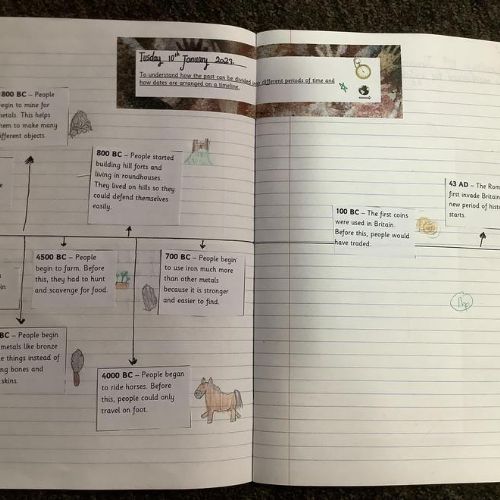 Tuesday 10th January 2023
To understand how the past can be divided into different periods of time and
how dates are arranged on a timeline.
800 BC – People
begin to mine for
metals. This helps
them to make many
different objects
800 BC – People started
building hill forts and
living in roundhouses.
They lived on hills so they
could defend themselves
easily.
4500 BC – People
begin to farm. Before
this, they had to hunt
and scavenge for food.
700 BC – People begin
to use iron much more
than other metals
because it is stronger
and easier to find.
BC – People begin
metals like bronze
things instead of
bones and
skins.
4000 BC – People began
to ride horses. Before
this, people could only
travel on foot.
100 BC – The first coins
were used in Britain.
Before this, people would
have traded.
43 AD – The
first invade Britain
new period of
starts.